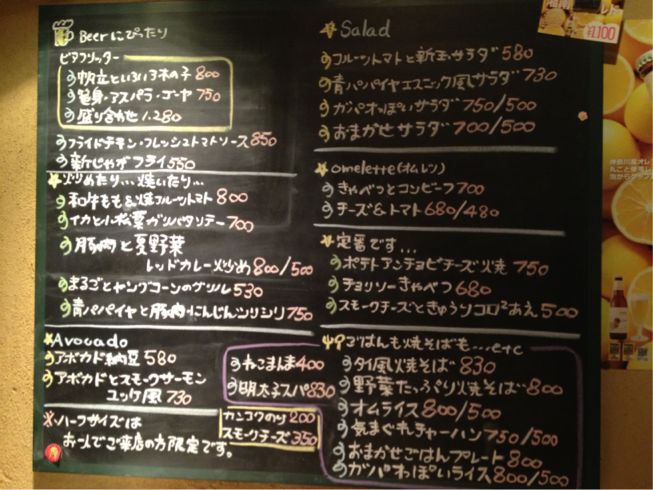 Beerにぴったり
ビアフリッター
帆立といろいろ木の子 800
・アスパラ・ゴーヤ 750
盛り合わせ 1,280
フライドチキン・フレッシュトマトソース 850
新じゃがフライ 550
炒めたり…焼いたり…
和牛もも&焼フルーツトマト 800
イカと小松菜ガリバタソテー 700
豚肉と夏野菜
レッドカレー炒め 800/500
まるごとヤングコーンのグリル 530
青パパイヤと豚肉にんじんシリシリ 750
Avocado
アボカド納豆 580
アボカドとスモークサーモン
ユッケ風 730
※ハーフサイズは
お一人でご来店の方限定です。
カンコクのり 200
スモークチーズ 350
Salad
フルーツトマトと新玉サラダ 580
青パパイヤエスニック風サラダ 730
ガパオっぽいサラダ 750/500
おまかせサラダ 700/500
omelette(オムレツ)
きゃべつとコンビーフ 700
チーズ&トマト 680/480
定番です…
ポテトアンチョビチーズ焼 750
チョリソーきゃべつ 680
スモークチーズときゅうりコロコロあえ 500
ごはんも焼そばも…etc
ねこまんま 400
明太子スパ 830
タイ風焼そば 830
野菜たっぷり焼そば 800
オムライス 800/500
気まぐれチャーハン 750/500
おまかせごはんプレート 800
ガパオっぽいライス 800/500
¥1,100
神奈川産オレ